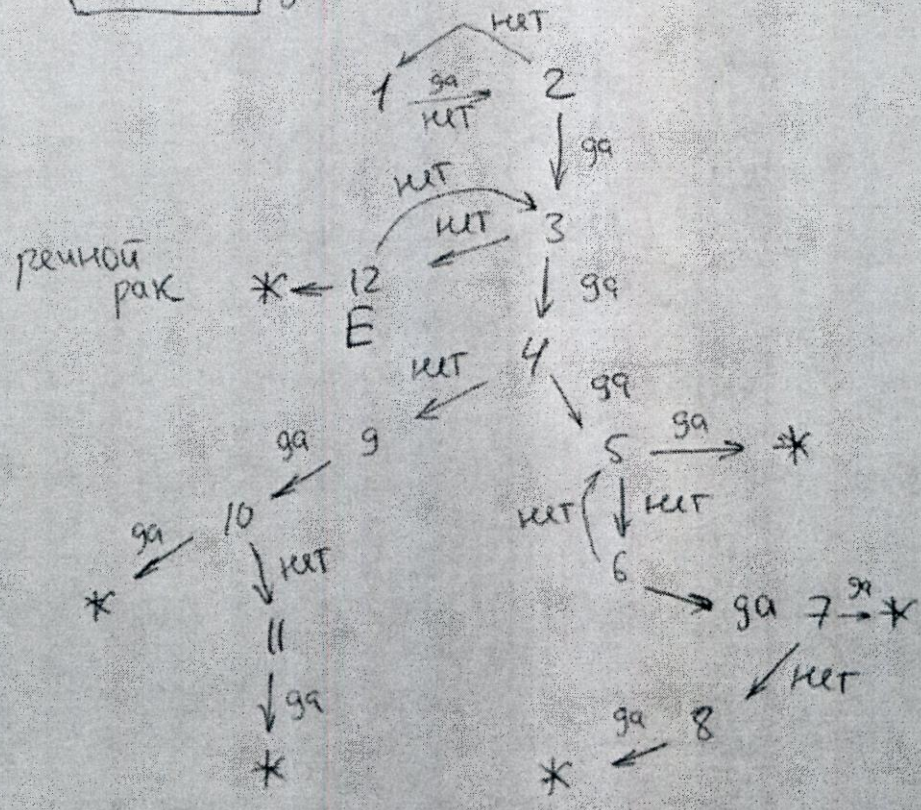 нет
1 да 2
нет
да
нет
нет 3
речной
рак * 12 да
E
нет 4
да
да 9 5 да *
10 нет нет
да нет 6
* да 7 да *
11 нет
да да 8
* *